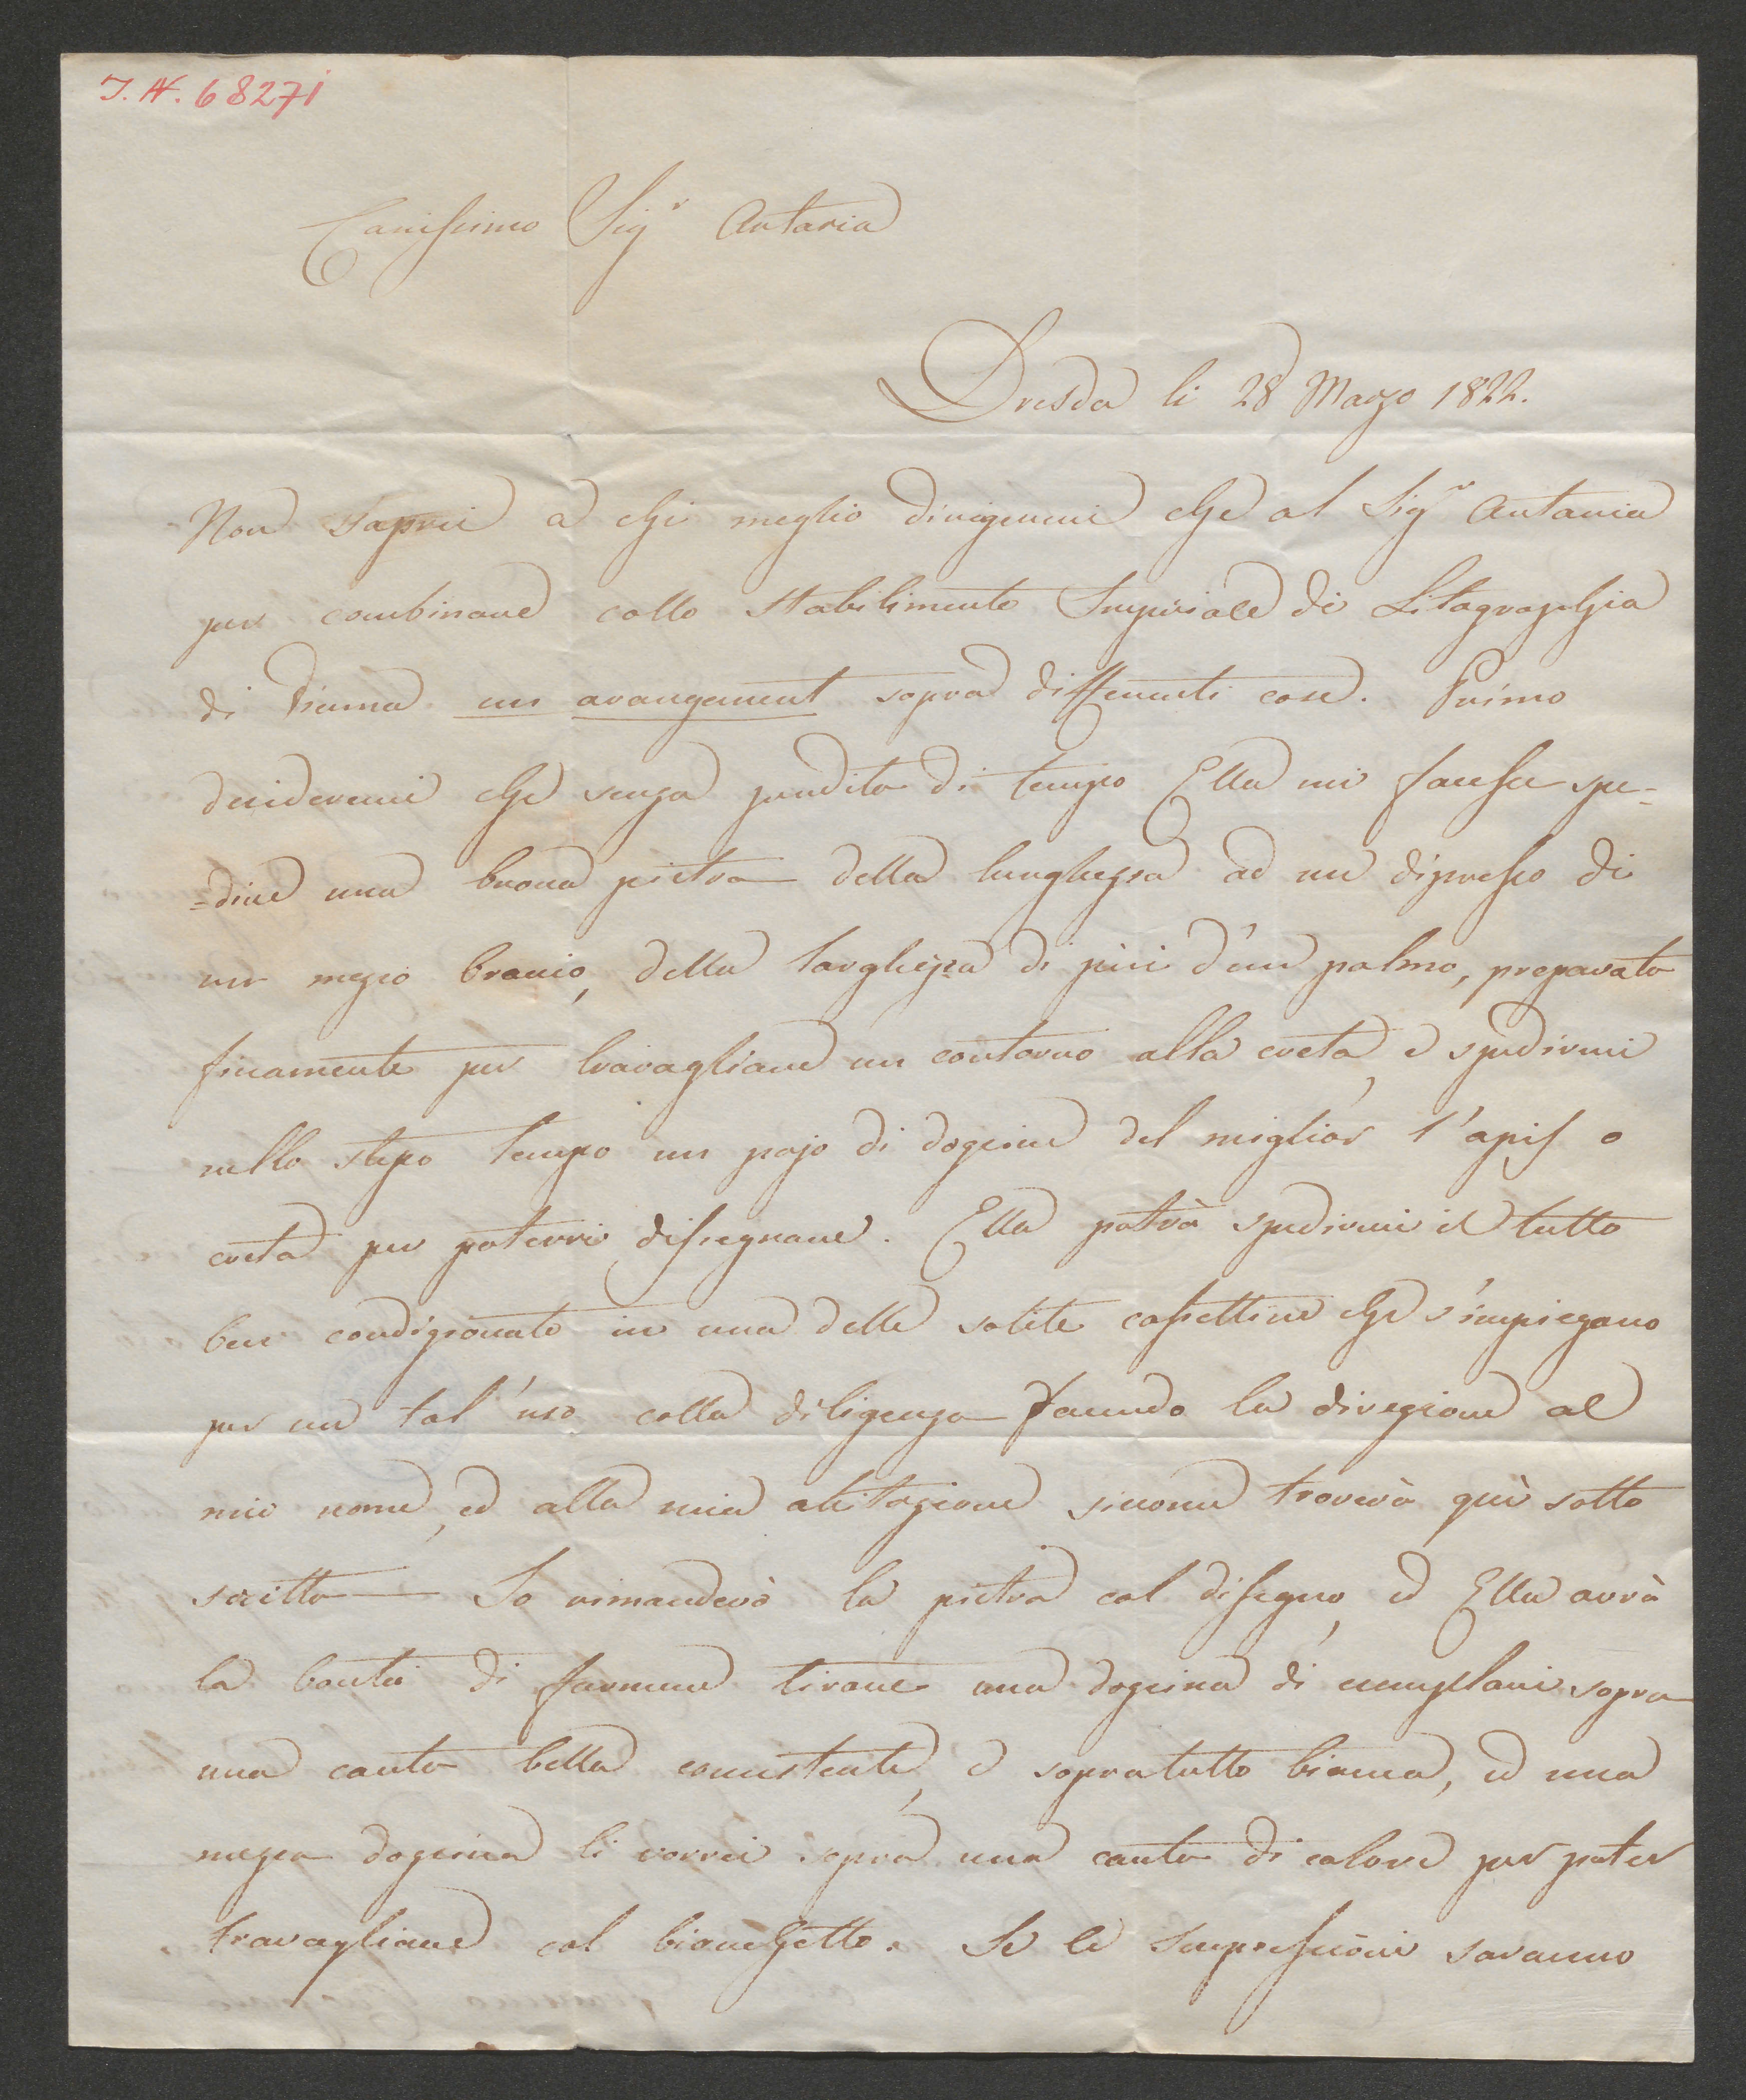 I. N. 68271
Carissimo Sigr Artaria
Dresda li 28 Marzo 1822.
Non saprei a chi meglio dirigermi che al Sigr Artaria
per combinare collo Stabilimento Imperiale di Litographia
di Vienna un arangement sopra differenti cose. Primo
desidererei che senza perdita di tempo Ella mi facesse spe=
=dire una buona pietra della lunghezza ad un dipresso di
un mezzo braccio, della larghezza di più d'un palmo, preparata
finamente per travagliare un contorno alla creta, e spedirmi
nello stesso tempo un pajo di dozzine del miglior l'apis o
creta per potervi dissegnare. Ella potrà spedirmi il tutto
ben condizionato in una delle solite cassettine che s'impiegano
per un tal'uso colla diligenza facendo la direzione al
mio nome, ed alla mia abitazione siccome troverà quì sotto
scritto — Io rimanderò la pietra col disegno, ed Ella avrà
la bontà di farmene tirare una dozzina di exemplari sopra
una carta bella consistente, e sopratutto bianca, ed una
mezza dozzina li vorrei sopra una carta di colore per poter
travagliare col bianchetto. Se le impressioni saranno